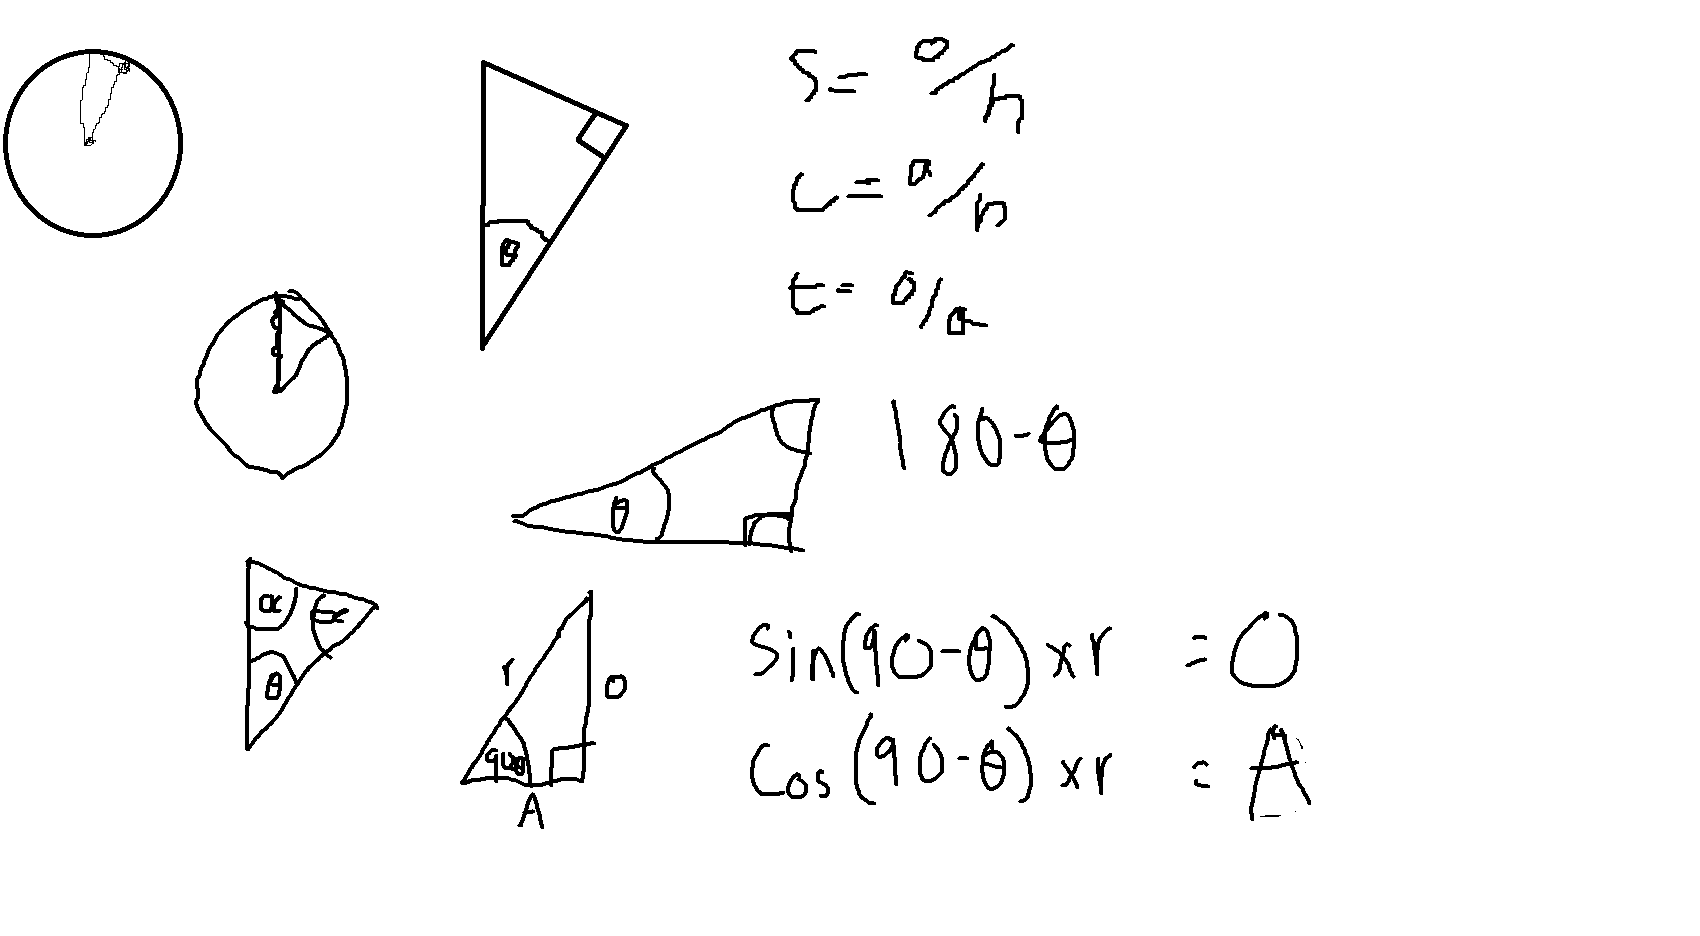 S = o/h
c = a/h
t = o/a
θ
180-θ
θ
α
α
θ
r
O
90-θ
A
Sin(90-θ) x r = O
Cos(90-θ) x r = A